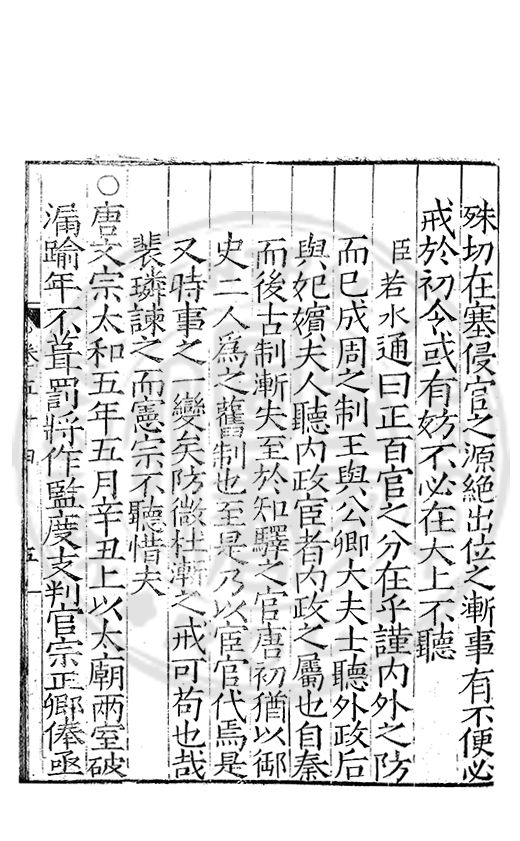 殊切在塞侵官之源絶出位之漸事有不便必
戒於初令或有妨不必在大上不聽
臣若水通曰正百官之分在乎謹内外之防
而已成周之制王與公卿大夫士聽外政后
與妃嬪夫人聽内政宦者内政之屬也自秦
而後古制漸失至於知驛之官唐初猶以御
史二人爲之舊制也至是乃以宦官代焉是
又時事之一變矣防微杜漸之戒可苟也哉
裴璘諫之而憲宗不聽惜夫
○唐文宗太和五年五月辛丑上以太廟兩室破
漏踰年不葺罰將作監度支判官宗正卿俸亟
卷五十四
五